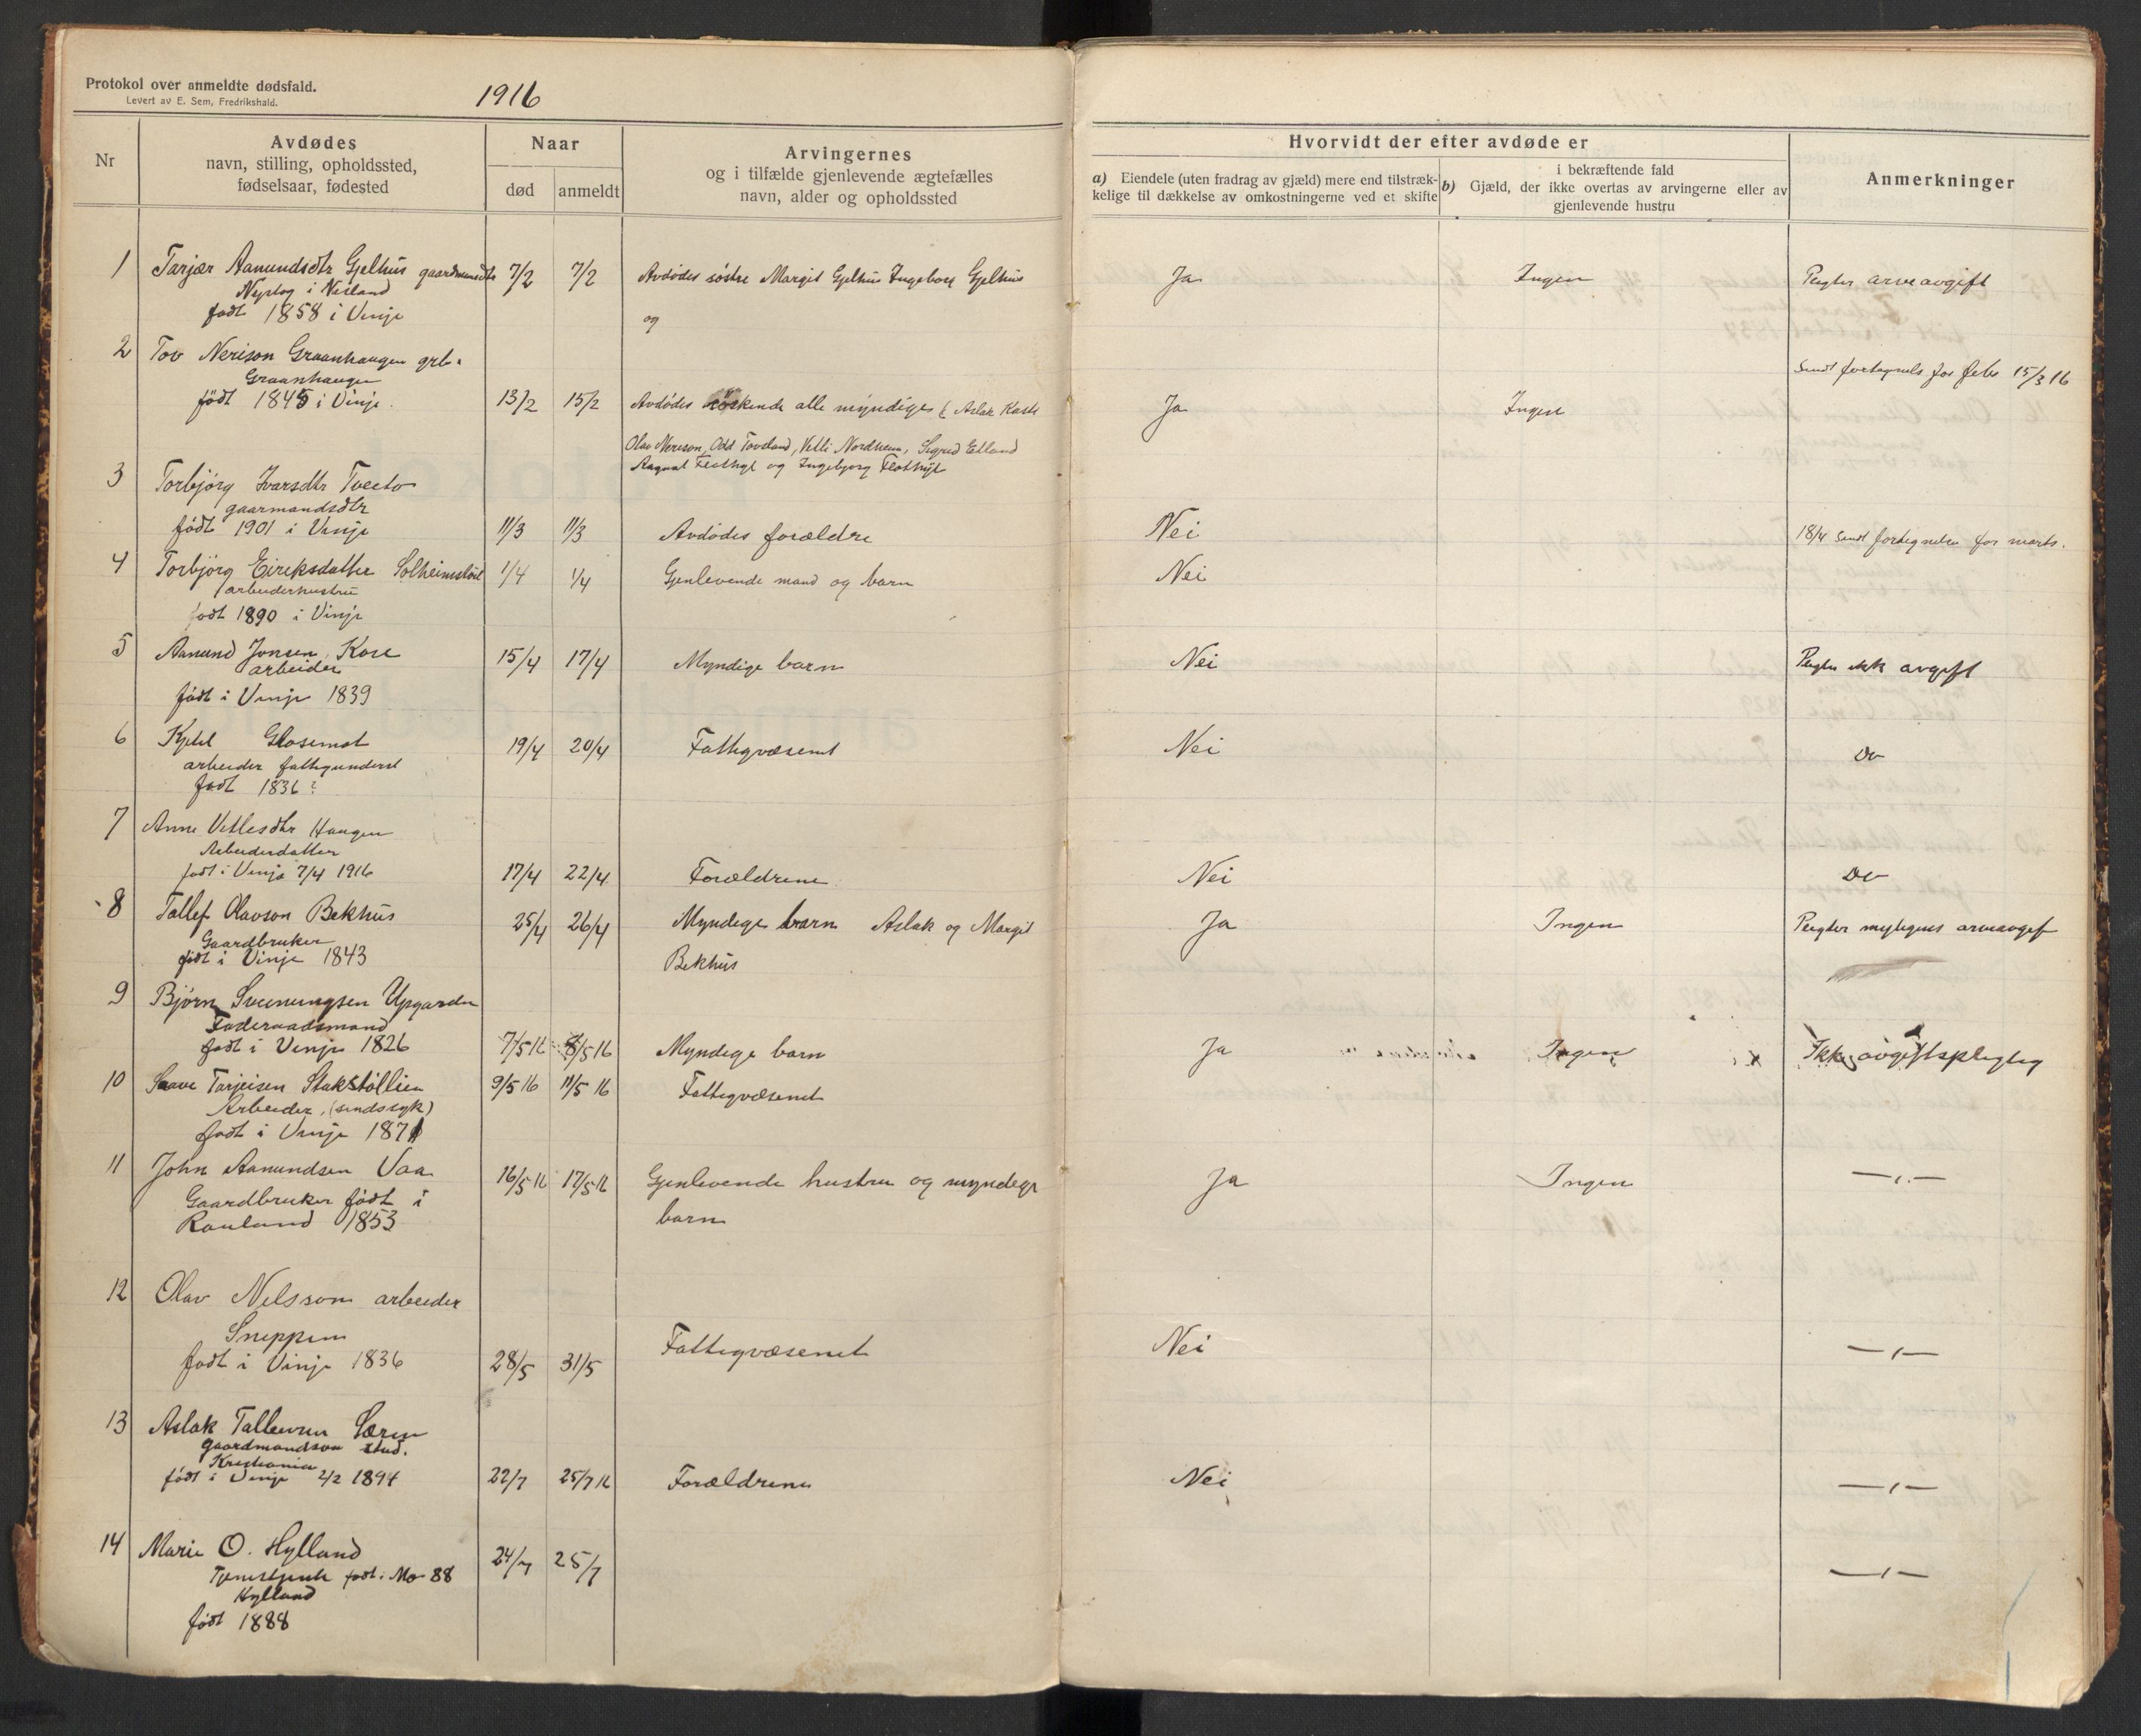 Protokol over anmeldte dødsfald.
Levert av E. Sem, Fredrikshald.
1916
Nr
Avdødes
navn, stilling, opholdssted,
fødselsaar, fødested
Naar
død
anmeldt
Arvingernes
og i tilfælde gjenlevende ægtefælles
navn, alder og opholdssted
Hvorvidt der efter avdøde er
a) Eiendele (uten fradrag av gjæld) mere end tilstræk-
kelige til dækkelse av omkostningerne ved et skifte
i bekræftende fald
b) Gjæld, der ikke overtas av arvingerne eller av
gjenlevende hustru
Anmerkninger
1 Tarjær Aanundsdtr Gjelhus 7/2 7/2 Avdødes søstre Margit Gjelhus Ingeborg Gjelhus Ja Ingen Pligter arveavgift
i Nesland
født 1858 i Vinje og
2 Tov Nerison Graanhaugen grb.
Graanhaugen Sendt fortegnels for febr 15/3 16
født 1845 i Vinje. 13/2 15/2 Avdødes söskende alle myndige Aslak Ja Ingen
Olav Nerison, Odd Tovsland, Vetli Nordheim, Sigrid
Flothyl og Ingebjorg Flothyl
3 Torbjörg Ivarsdtr Tveito
gaarmandsdtr
født 1901 i Vinje 11/3 11/3 Avdødes forældre Nei 18/4 Sendt fortegnelse for marts.
4 Torbjörg Eireksdatter 1/4 1/4 Gjenlevende mand og barn Nei
arbeiderhustru
født 1890 i Vinje
5 Aanund Jonsen 15/4 17/4 Myndige barn Nei Pligter ikk avgift
arbeider
født i Vinje 1839
6 Kjetil 19/4 20/4 Fattigvæsenet Nei Do
arbeider fattigunderst
født 1836?
7 Anne Vetlesdtr Haugen
Arbeiderdatter
født i Vinje 7/4 1916 17/4 22/4 Forældrene Nei Do
8 Tallef Olavson Bekhus 25/4 26/4 Myndige barn Aslak og Margit Ja Ingen Pligter arveavgif
Gaardbruker
født i Vinje 1843 Bekhus
9 Bjørn Sveinungsen Upgarden
Føderaadsmand
født i Vinje 1826 7/5 16 8/5 16 Myndige barn Ja Ingen Ikke avgiftspligtig
10 Saave Tarjeisen 9/5 16 11/5 16 Fattigvæsenet
Arbeider, (sindssyk)
født i Vinje 1871
11 John Aanundsen Vaa 16/5 16 17/5 16 Gjenlevende hustru og myndige Ja Ingen —"—
Gaardbruker født i barn
Rauland 1853
12 Olav Nilsson arbeider
Sneppen
født i Vinje 1836 28/5 31/5 Fattigvæsenet Nei —"—
13 Aslak
gaardmandson stud.
Kristiania
født i Vinje 2/2 1894 22/7 25/7 16 Forældrene Nei —"—
14 Marie O. Hylland 24/7 25/7 —"—
Tjenestjente født i Mo 88
Hylland
født 1888